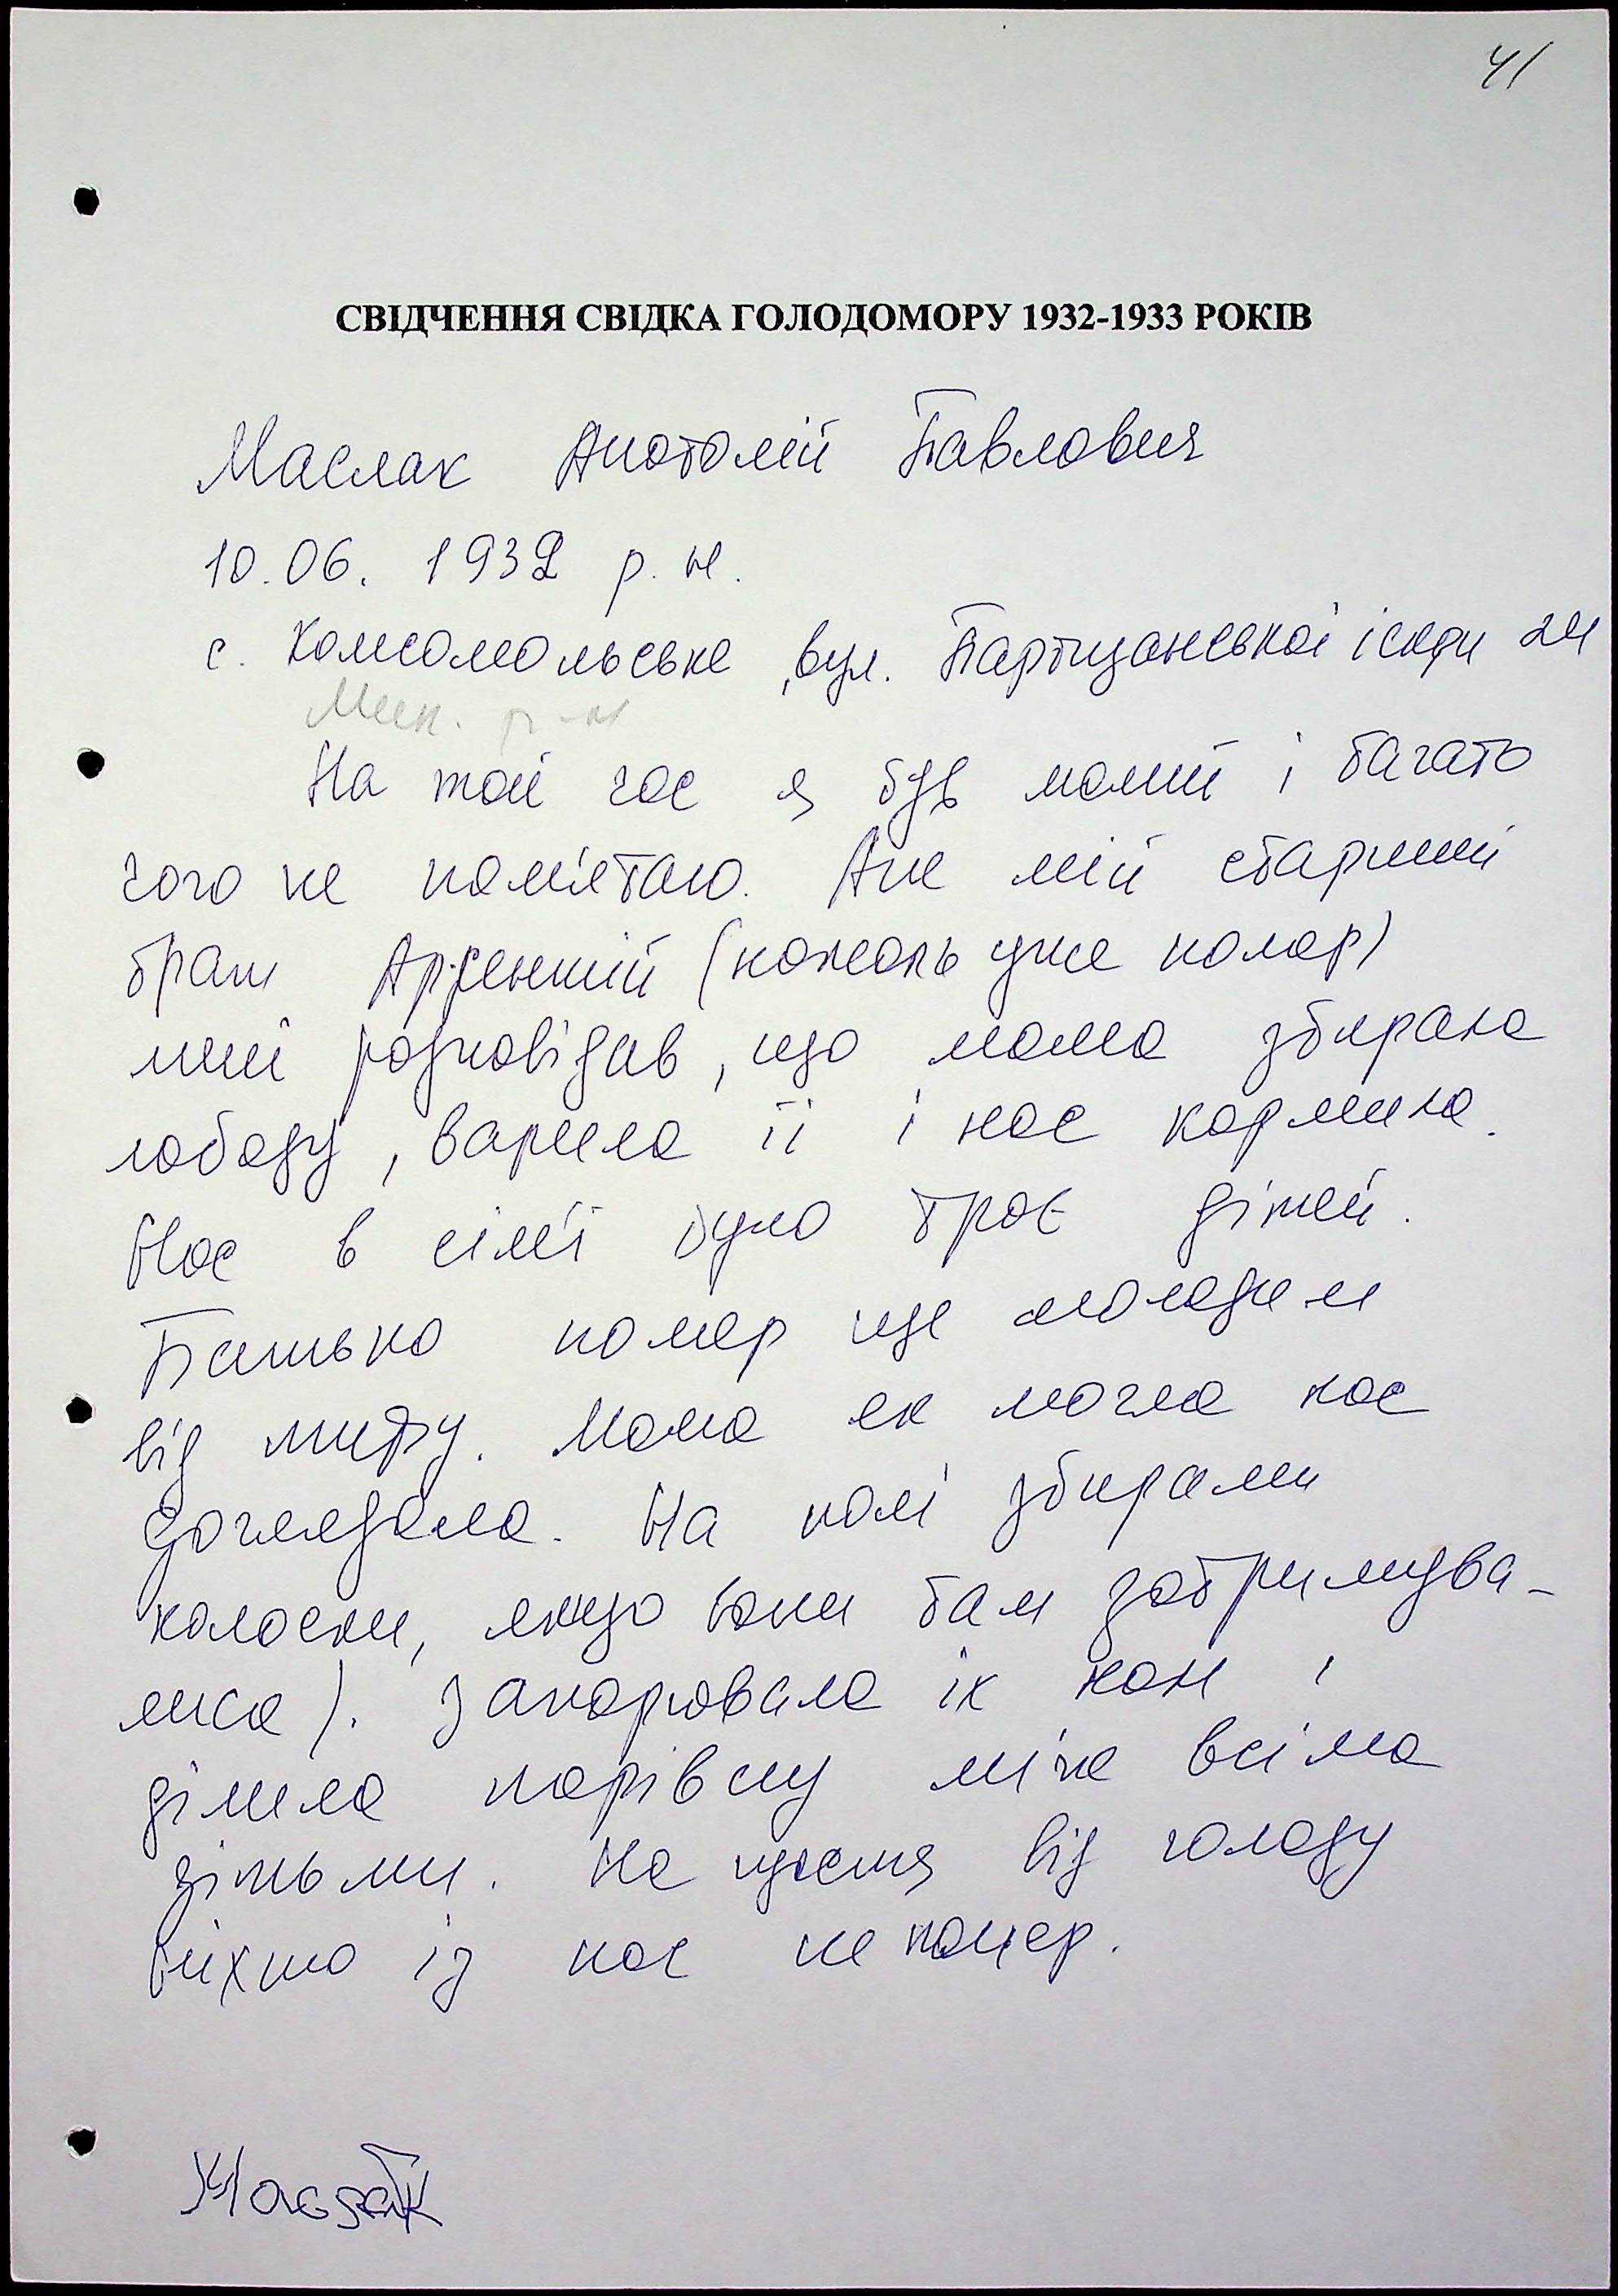 41
СВІДЧЕННЯ СВІДКА ГОЛОДОМОРУ 1932-1933 РОКІВ
Маслак Анатолій Павлович
10.06. 1932 р. н.
с. Комсомольське, вул. Партизанської іскри 24
Мик. р-н
На той час я був малий і багато
чого не пам'ятаю. Але мій старший
брат Арсентій (на жаль уже помер)
мені розповідав, що мама збирала
лободу, варила її і нас кормила.
Нас в сім'ї було троє дітей.
Батько помер ще молодим
від тифу. Мама як могла нас
доглядала. На полі збирали
колоски, якщо вони там затримува-
лися). Запарювала їх нам і
ділила порівну між всіма
дітьми. На щастя від голоду
ніхто із нас не помер.
Маслак